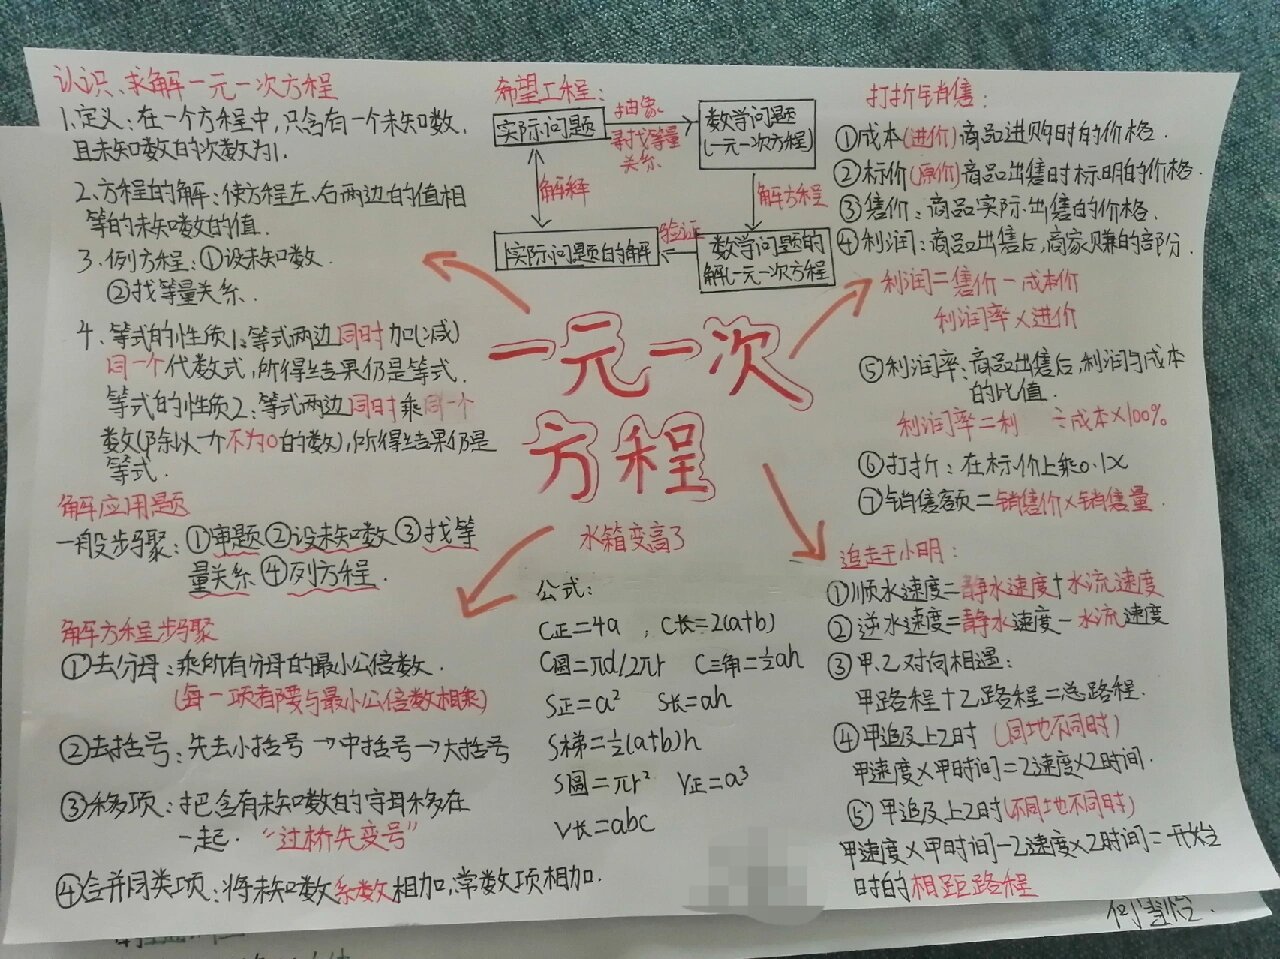 认识、求解一元一次方程
1.定义：在一个方程中，只含有一个未知数，
且未知数的次数为1.
2.方程的解：使方程左、右两边的值相
等的未知数的值.
3.列方程：①设未知数.
②找等量关系.
4.等式的性质1：等式两边同时加(减)
同一个代数式，所得结果仍是等式.
等式的性质2：等式两边同时乘同一个
数(除以一个不为0的数)，所得结果仍是
等式.
解应用题
一般步骤：①审题②设未知数③找等
量关系④列方程.
解方程步骤
①去分母：乘所有分母的最小公倍数.
(每一项都要与最小公倍数相乘)
②去括号：先去小括号→中括号→大括号
③移项：把含有未知数的字母移在
一起.“过桥先变号”
④合并同类项：将未知数系数相加，常数项相加.
希望工程：
实际问题
抽象
寻找等量
关系
数学问题
(一元一次方程)
解释
解方程
实际问题的解
验证
数学问题的
解(一元一次方程)
一元一次
方程
水箱变高了
公式：
C正=4a ，C长=2(a+b)
C圆=πd/2πr C三角=½ah
S正=a² S长=ah
S梯=½(a+b)h
S圆=πr² V正=a³
V长=abc
打折销售：
①成本(进价)商品进购时的价格.
②标价(原价)商品出售时标明的价格.
③售价：商品实际出售的价格.
④利润：商品出售后，商家赚的部分.
利润=售价-成本价
利润率×进价
⑤利润率：商品出售后，利润与成本
的比值.
利润率=利 ÷成本×100%
⑥打折：在标价上乘0.1x
⑦销售额=销售价×销售量.
追赶小明：
①顺水速度=静水速度+水流速度
②逆水速度=静水速度-水流速度
③甲.乙对向相遇：
甲路程+乙路程=总路程.
④甲追及上乙时(同地不同时)
甲速度×甲时间=乙速度×乙时间.
⑤甲追及上乙时(不同地不同时)
甲速度×甲时间-乙速度×乙时间=开始
时的相距路程